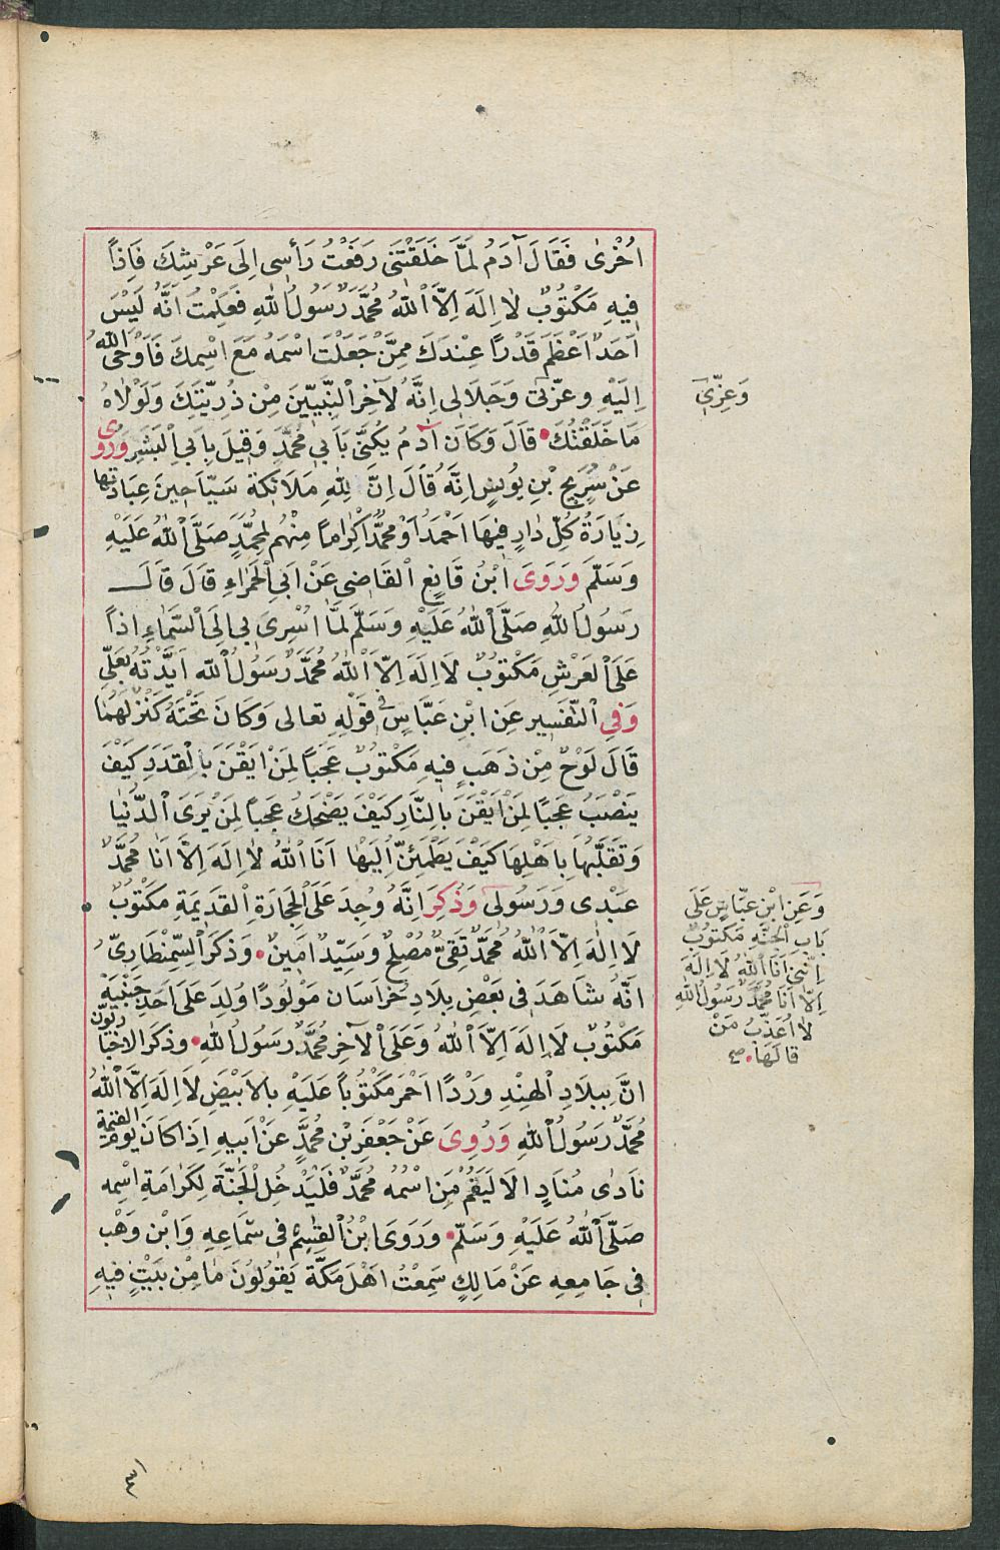 اُخْرٰى فَقَالَ آدَمُ لَمَّا خَلَقْتَنِى رَفَعْتُ رَأْسِى اِلَى عَرْشِكَ فَاِذَا
فِيهِ مَكْتُوْبٌ لَا اِلَهَ اِلَّا اللّٰهُ مُحَمَّدٌ رَسُولُ اللّٰهِ فَعَلِمْتُ اَنَّهُ لَيْسَ
اَحَدٌ اَعْظَمَ قَدْرًا عِنْدَكَ مِمَّنْ جَعَلْتَ اسْمَهُ مَعَ اسْمِكَ فَاَوْحَى اللّٰهُ
اِلَيْهِ وعزّتى وَجَلَالِى اِنَّهُ لَآخِرُ النَّبِيّينَ مِنْ ذُرِّيَّتِكَ وَلَوْلَاهُ
مَا خَلَقْتُكَ • قَالَ وَكَانَ آدَمُ يُكَنَّى بِاَبِى مُحَمَّدٍ وَقِيلَ بِاَبِى الْبَشَرِ وَرُوِىَ
عَنْ سُرَيجِ بْنِ يُونِسٍ اِنَّهُ قَالَ اِنَّ لِلّٰهِ مَلَائِكَة سَيَّاحِينَ عِبَادَتها
زِيَارَةُ كُلِّ دَارٍ فِيهَا اَحْمَدُ اَوْ مُحَمَّدٌ اِكْرَامًا مِنْهُمْ لِمُحَمَّدٍ صَلَّى اللّٰهُ عَلَيْهِ
وَسَلَّمَ وَرَوَىَ ابْنُ قَانِعِ الْقَاضِى عَنْ اَبِى الْحَمْرَاءِ قَالَ قَالَ
رَسُولُ اللّٰهِ صَلَّى اللّٰهُ عَلَيْهِ وَسَلَّمَ لَمَّا اُسْرِىَ بِى اِلَى السَّمَاءِ اِذَا
عَلَى الْعَرْشِ مَكْتُوبٌ لَا اِلَهَ اِلَّا اللّٰهُ مُحَمَّدٌ رَسُولُ اللّٰه اَيَّدْتُهُ بِعَلِّى
وَفِى التَّفْسِيرِ عَنِ ابْنِ عَبَّاسٍ فى قَوْلِهِ تعالى وَكَانَ تَحْتَهُ كَنْزٌ لَهُمَا
قَالَ لَوْحٌ مِنْ ذَهَبٍ فِيهِ مَكْتُوبٌ عَجَبًا لِمَنْ اَيْقَنَ بِالْقَدَرِ كَيْفَ
يَنْصَبُ عَجَبًا لِمَنْ اَيْقَنَ بِالنَّارِ كَيْفَ يَضْحَكُ عَجَبًا لِمَنْ يَرَىَ الدُّنْيَا
وَتَقَلُّبَهَا بِاَهْلِهَا كَيْفَ يَطْمَئِنُّ اِلَيْهَا اَنَا اللّٰهُ لَا اِلَهَ اِلَّا اَنَا مُحَمَّدٌ
عَبْدِى وَرَسُولِى وَذُكِرَ اَنَّهُ وُجِدَ عَلَى الْحِجَارَةِ الْقَدِيمَةِ مَكْتُوبٌ
لَا اِلٰهَ اِلَّا اللّٰهُ مُحَمَّدٌ تَقِىٌّ مُصْلِحٌ وَسَيِّدٌ اَمِينٌ • وَذَكَرَ السِّمِنْطَارِىُّ
اَنَّهُ شَاهَدَ فِى بَعْضِ بِلَادِ خُرَاسَان مَوْلُودًا وُلِدَ عَلَى اَحَدِ جَنْبَيْهِ
مَكْتُوبٌ لَا اِلَهَ اِلَّا اللّٰهُ وَعَلَى الْآخِرِ مُحَمَّدٌ رَسُولُ اللّٰهِ • وذكَر الاخباريّون
انَّ بِبِلَادِ الْهِنْدِ وَرْدًا اَحْمَرَ مَكْتُوبًا عَلَيْهِ بالْاَبْيَضِ لَا اِلَهَ اِلَّا اللّٰهُ
مُحَمَّدٌ رَسُولُ اللّٰهِ وَرُوِىَ عَنْ جَعْفَرِ بْنِ مُحَمَّدٍ عَنْ اَبِيهِ اِذَا كَانَ يَوْمُ القيٰمة
نَادٰى مُنَادٍ اَلَا لَيَقُمْ مَنِ اسْمُهُ مُحَمَّدٌ فَلْيَدْخُلِ الْجَنَّةَ لِكَرَامَةِ اسْمِه
صَلَّى اللّٰهُ عَلَيْهِ وَسَلَّمَ • وَرَوَىَ ابْنُ الْقٰسِمِ فِى سَمَاعِهِ وَابْن وَهْب
فِى جَامِعِهِ عَنْ مَالِكٍ سَمِعْتُ اَهْلَ مَكَّةَ يَقُولُونَ مَا مِنْ بَيْتٍ فِيهِ
وَعِزَّتِى
وَعَنِ ابْنِ عَبَّاسٍ عَلَى
بَابِ الْجَنَّهِ مَكتُوبٌ
اِنَّنِى اَنَا اللّٰهُ لَا اِلَهَ
اِلَّا اَنَا مُحَمَّدٌ رَسُولُ اللّٰهِ
لَا اُعَذِّبُ مَنْ
قَالَهَا • صح